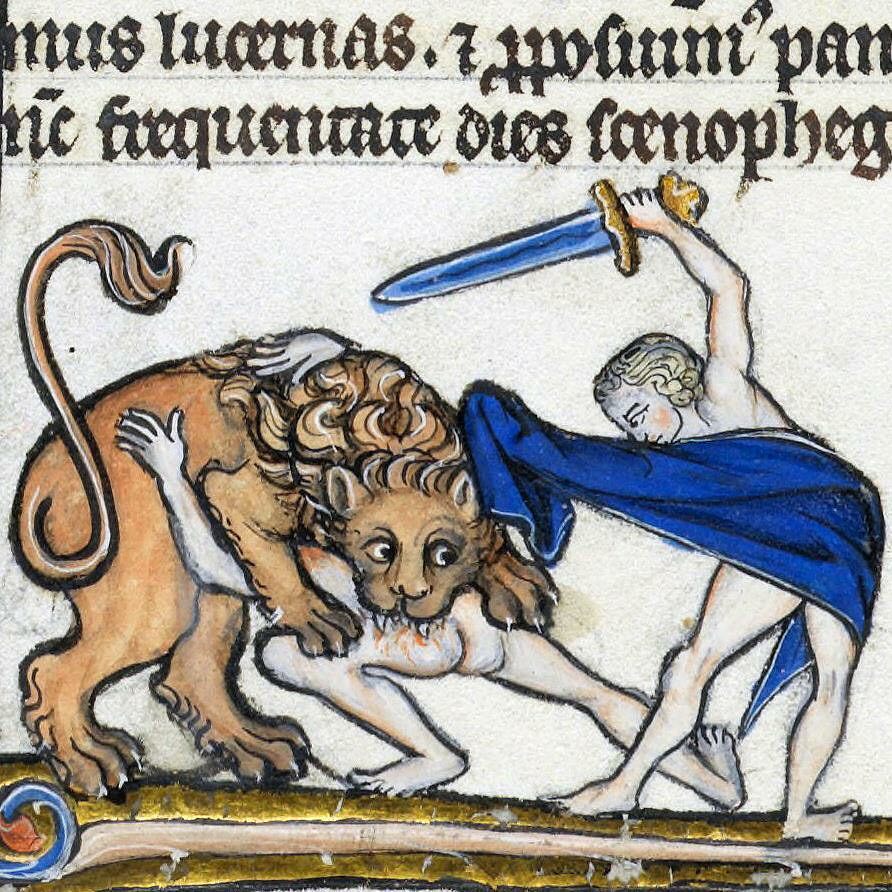 mus lucernas. ⁊ ꝓposuimꝰ pan
nc̄ frequentate dies scenopheg